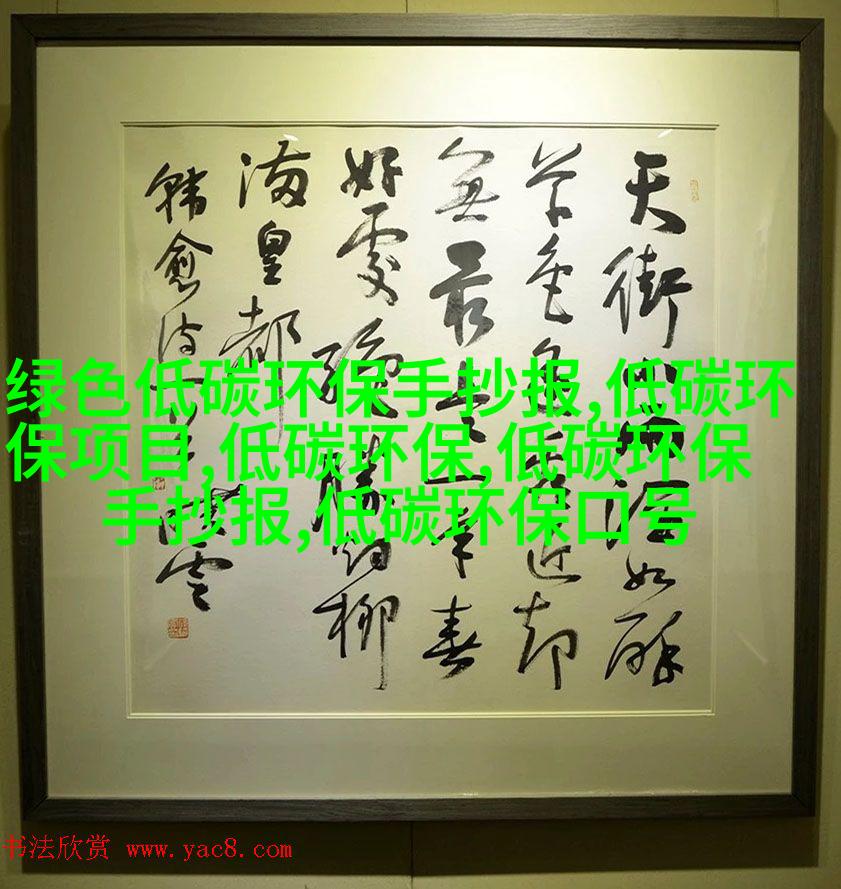 天街小雨潤如酥
草色遥看近却
無最是一年春
好處絕勝烟柳
滿皇都
韓愈詩
绿色低碳环保手抄报,低碳环
保项目,低碳环保,低碳环保
手抄报,低碳环保口号
书法欣赏 www.yac8.com